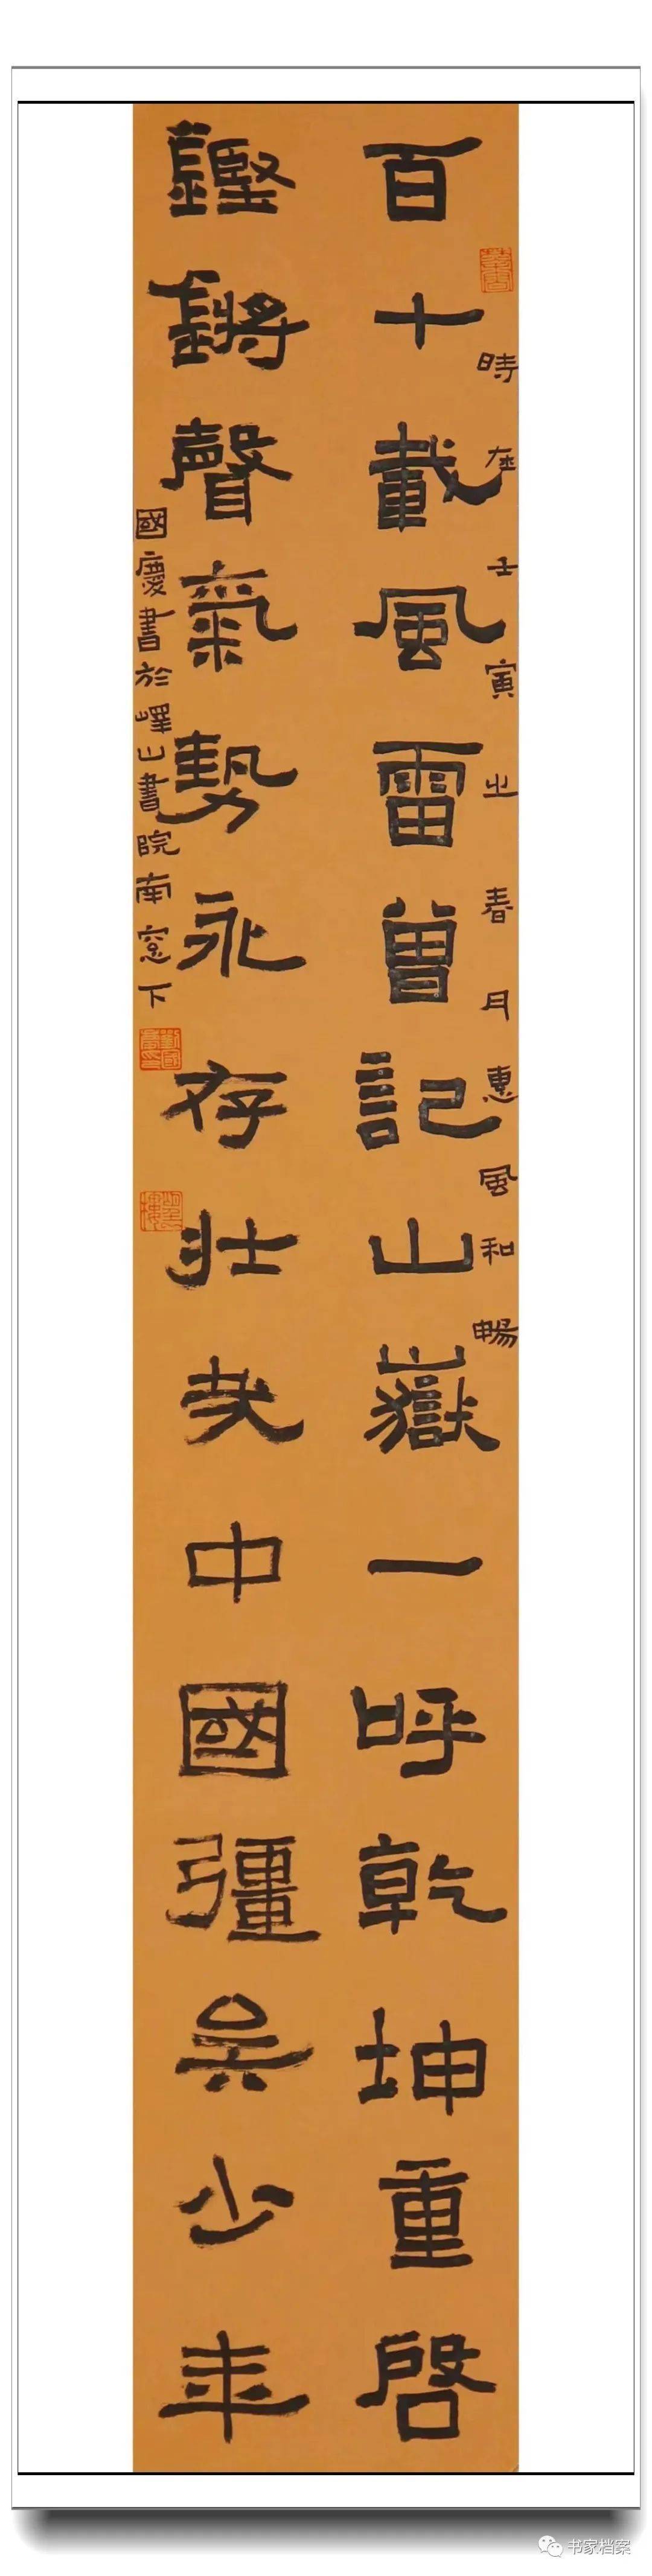 百十載風雷曾記山嶽一呼乾坤重啓
時在壬寅之春月惠風和暢
鏗鏘聲氣勢永存壯哉中國疆吳少年
國慶書於嶧山書院南窓下
书家档案